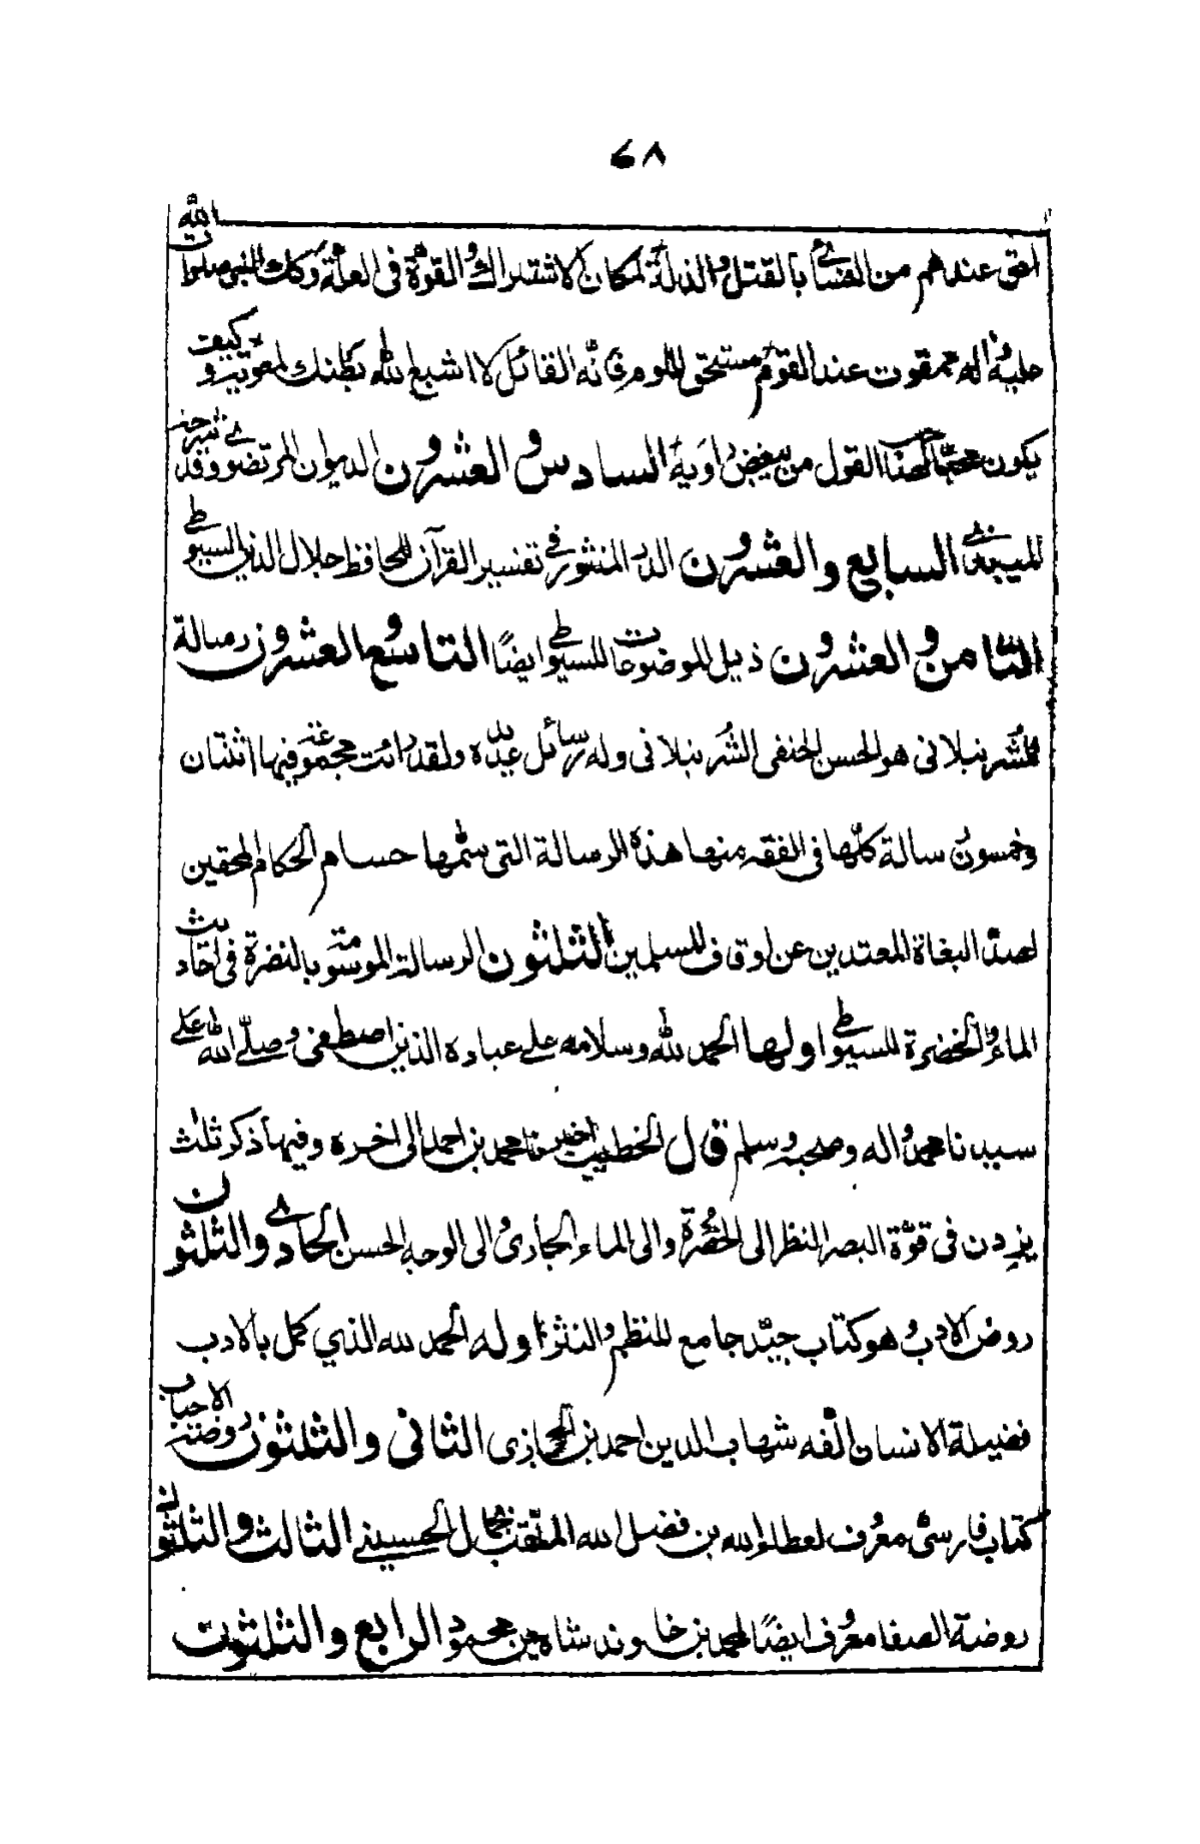 ٦٨
احق عندهم من النسائي بالقتل والذلة لمكان الاشتراك والقوة في العلة وكان النبي صلوات الله
عليه وآله ممقوت عند القوم مستحق للوم فانه القائل لا اشبع الله بطنك لمعوية وكيف
يكون محبا لهذا القول من يبغض راويه السادس والعشرون الديوان المرتضوي وقد شرحه
الميبدي السابع والعشرون الدر المنثور في تفسير القرآن للحافظ جلال الدين السيوطي
الثامن والعشرون ذيل الموضوعات للسيوطي ايضًا التاسع والعشرون رسالة
للشرنبلاني هو الحسن الحنفي الشرنبلاني وله رسائل عديدة ولقد رأيت مجموعة فيها اثنتان
وخمسون رسالة كلّها في الفقه منها هذه الرسالة التي سمّها حسام الحكام المحقين
لصدّ البغاة المعتدين عن اوقاف المسلمين الثلثون الرسالة الموسومة بالنضرة في احاديث
الماء والخضرة للسيوطي اولها الحمد لله وسلامه على عباده الذين اصطفى وصلّى الله على
سيدنا محمد واله وصحبه وسلم قال الخطيب اخبرنا محمد بن احمد الى اخره وفيها ذكر ثلث
يزدن في قوّة البصر النظر الى الخضرة والى الماء الجاري والى الوجه الحسن الحادي والثلثون
روض الادب وهو كتاب جيّد جامع للنظم والنثر اوله الحمد لله الذي كمل بالادب
فضيلة الانسان الّفه شهاب الدين احمد بن الحجازي الثاني والثلثون روضة الاحباب
كتاب فارسي معروف لعطاء الله بن فضل الله الملقب بجمال الحسيني الثالث والثلثون
روضة الصفا معروف ايضًا لمحمد بن خاوند شاه بن محمود الرابع والثلثون